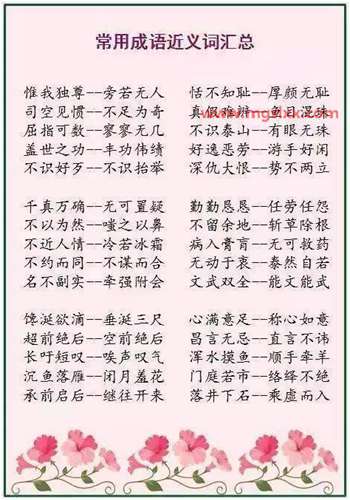 常用成语近义词汇总
惟我独尊--旁若无人
司空见惯--不足为奇
屈指可数--寥寥无几
盖世之功--丰功伟绩
不识好歹--不识抬举
恬不知耻--厚颜无耻
真假难辨--鱼目混珠
不识泰山--有眼无珠
好逸恶劳--游手好闲
深仇大恨--势不两立
千真万确--无可置疑
不以为然--嗤之以鼻
不近人情--冷若冰霜
不约而同--不谋而合
名不副实--牵强附会
勤勤恳恳--任劳任怨
不留余地--斩草除根
病入膏肓--无可救药
无动于衷--泰然自若
文武双全--能文能武
馋涎欲滴--垂涎三尺
超前绝后--空前绝后
长吁短叹--唉声叹气
沉鱼落雁--闭月羞花
承前启后--继往开来
心满意足--称心如意
昌言无忌--直言不讳
浑水摸鱼--顺手牵羊
门庭若市--络绎不绝
落井下石--乘虚而入